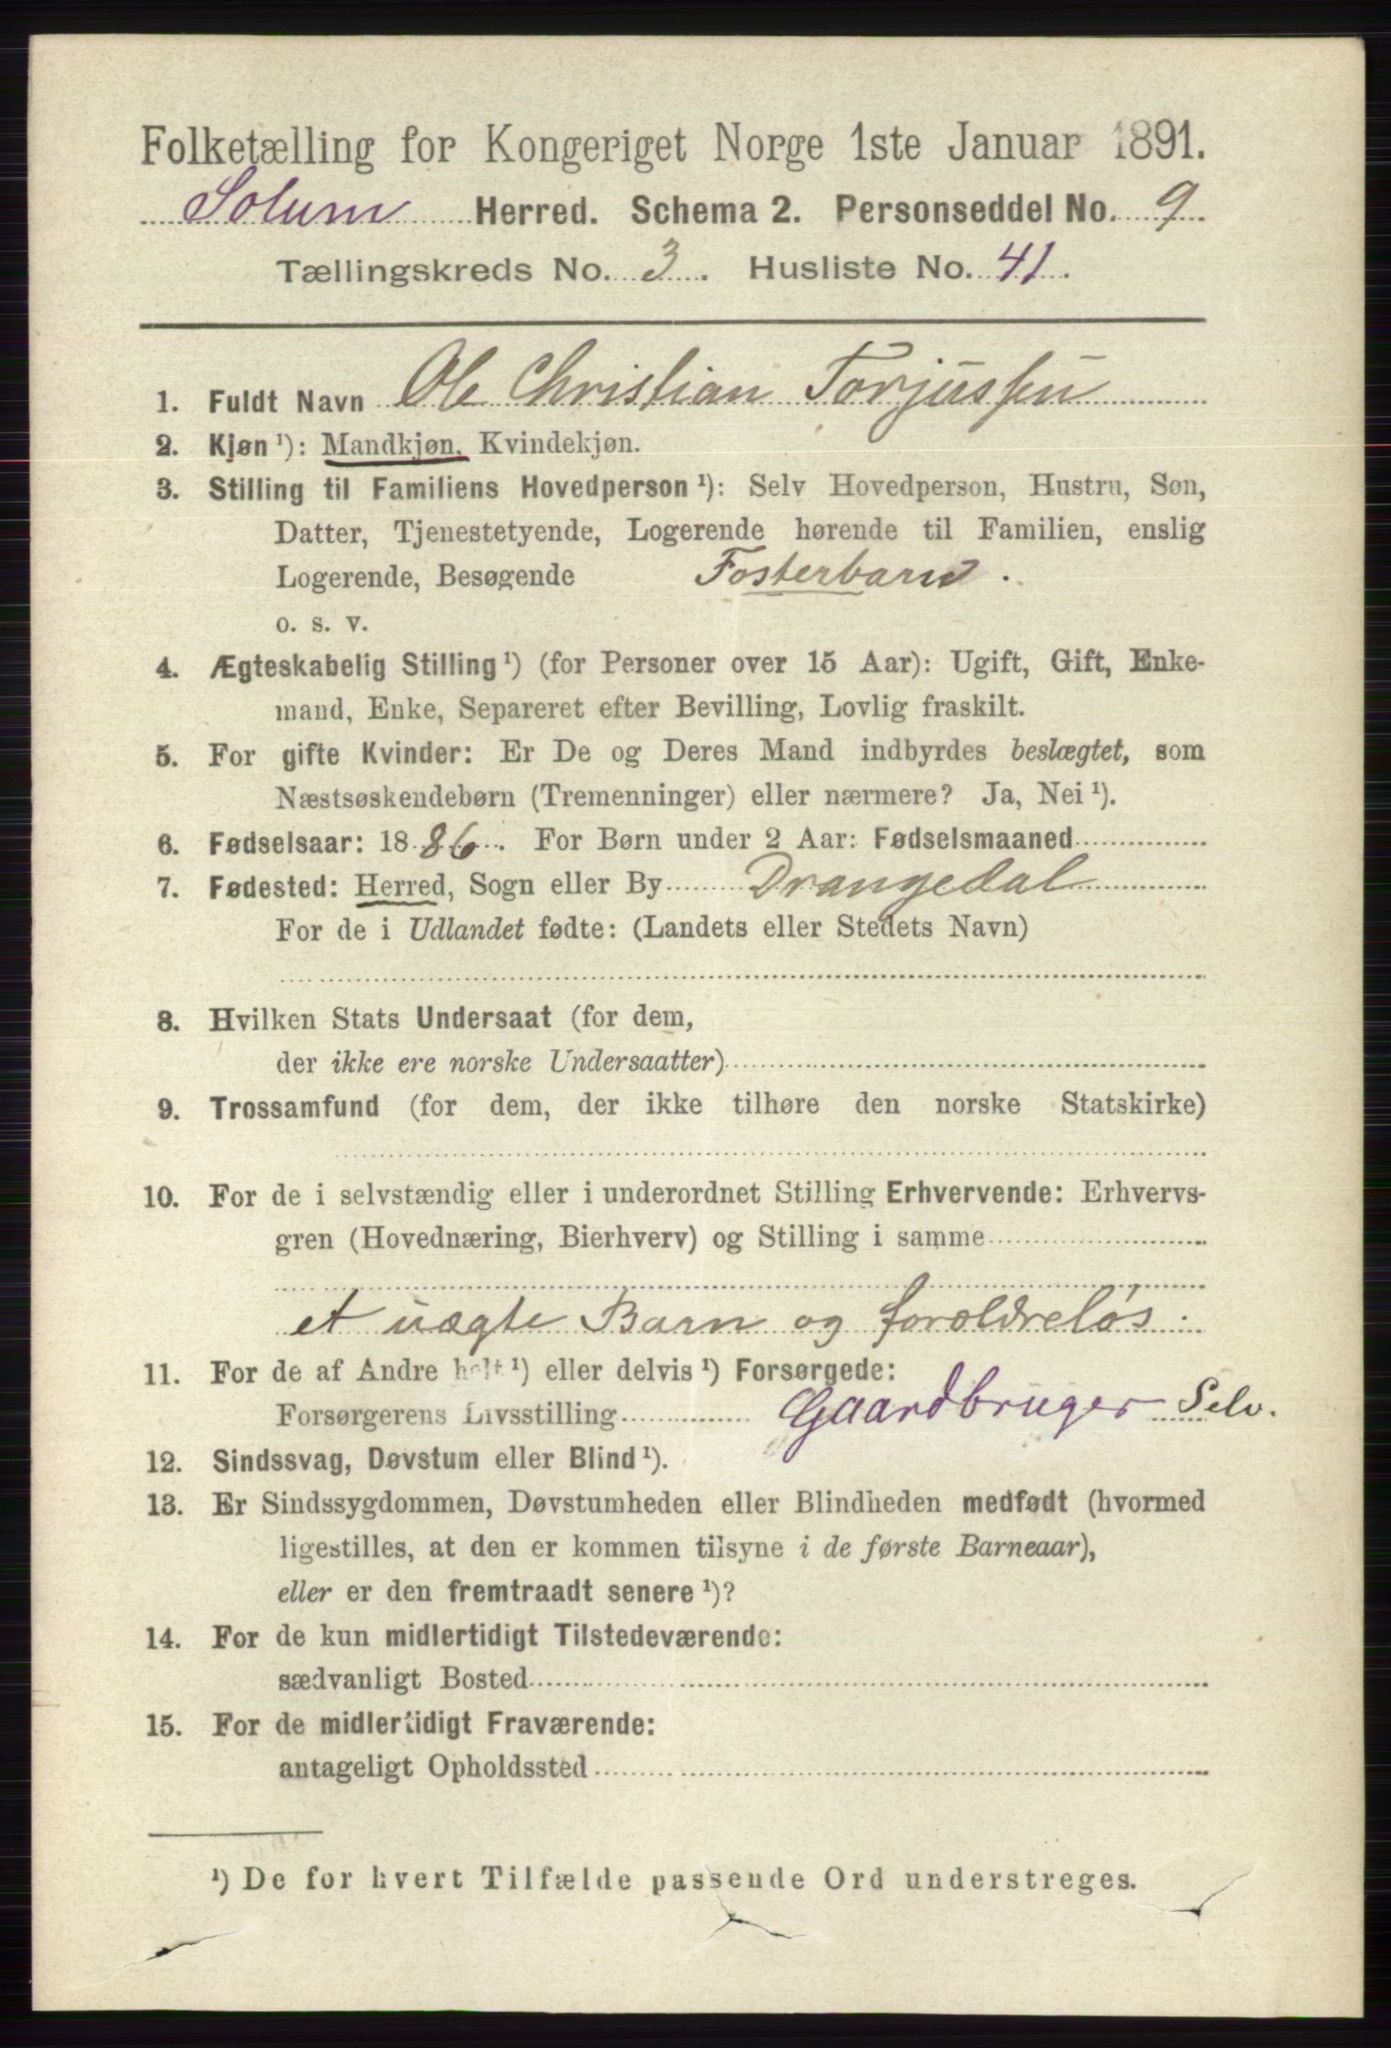 Folketælling for Kongeriget Norge 1ste Januar 1891.
Solum Herred. Schema 2. Personseddel No. 9.
Tællingskreds No. 3. Husliste No. 41.
1. Fuldt Navn Ole Christian Torjussen
2. Kjøn ¹): Mandkjøn, Kvindekjøn.
3. Stilling til Familiens Hovedperson ¹): Selv Hovedperson, Hustru, Søn,
Datter, Tjenestetyende, Logerende hørende til Familien, enslig
Logerende, Besøgende Fosterbarn.
o. s. v.
4. Ægteskabelig Stilling ¹) (for Personer over 15 Aar): Ugift, Gift, Enke-
mand, Enke, Separeret efter Bevilling, Lovlig fraskilt.
5. For gifte Kvinder: Er De og Deres Mand indbyrdes beslægtet, som
Næstsøskendebørn (Tremenninger) eller nærmere? Ja, Nei ¹).
6. Fødselsaar: 1886. For Børn under 2 Aar: Fødselsmaaned
7. Fødested: Herred, Sogn eller By Drangedal
For de i Udlandet fødte: (Landets eller Stedets Navn)
8. Hvilken Stats Undersaat (for dem,
der ikke ere norske Undersaatter)
9. Trossamfund (for dem, der ikke tilhøre den norske Statskirke)
10. For de i selvstændig eller i underordnet Stilling Erhvervende: Erhvervs-
gren (Hovednæring, Bierhverv) og Stilling i samme
et uægte Barn og forældreløs.
11. For de af Andre helt ¹) eller delvis ¹) Forsørgede:
Forsørgerens Livsstilling Gaardbruger Selv.
12. Sindssvag, Døvstum eller Blind ¹).
13. Er Sindssygdommen, Døvstumheden eller Blindheden medfødt (hvormed
ligestilles, at den er kommen tilsyne i de første Barneaar),
eller er den fremtraadt senere ¹)?
14. For de kun midlertidigt Tilstedeværende:
sædvanligt Bosted
15. For de midlertidigt Fraværende:
antageligt Opholdssted
¹) De for hvert Tilfælde passende Ord understreges.